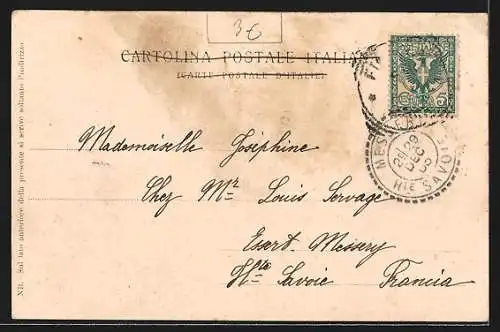 3€
CARTOLINA POSTALE ITALIANA
(CARTE POSTALE D'ITALIE)
NB. - Sul lato anteriore della presente si scrive soltanto l'indirizzo
5
MES
29 DEC
HTE SAVOIE
Mademoiselle Joséphine
Chez Mr. Louis Servage
Essert-Messery
Hte Savoie Francia